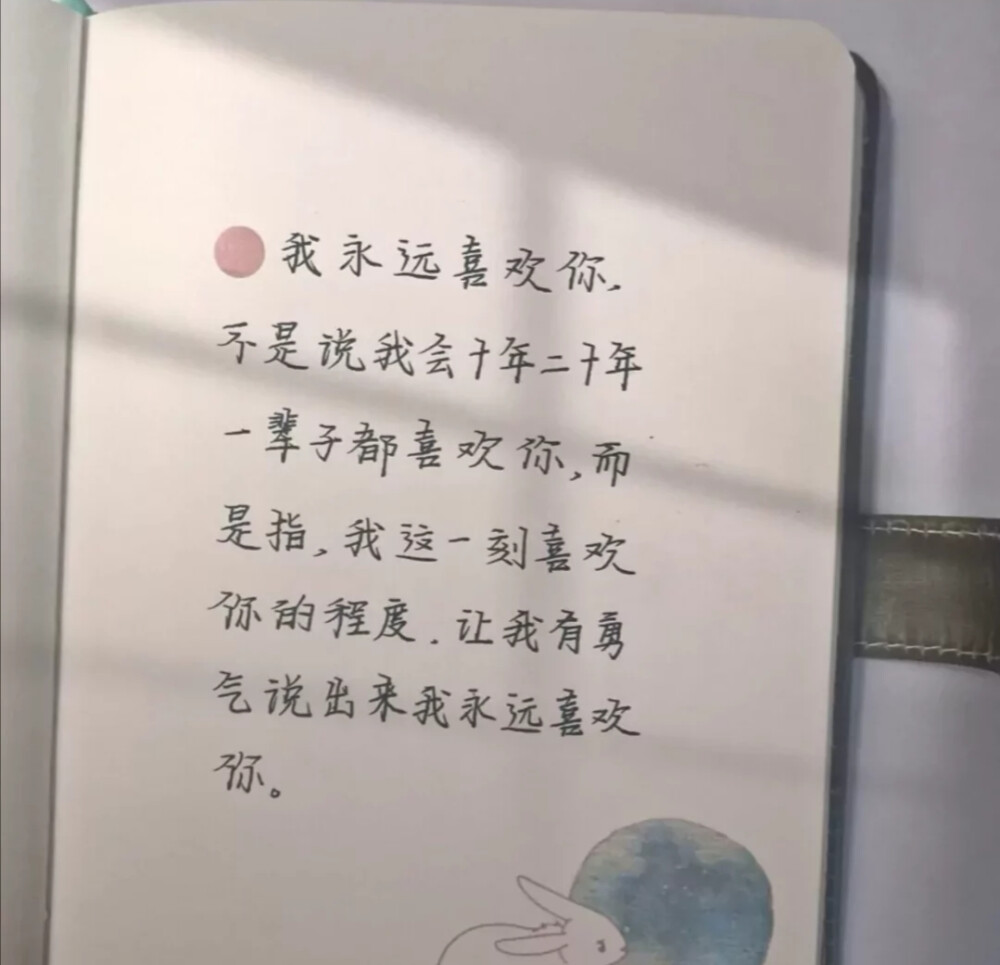 我永远喜欢你,
不是说我会十年二十年
一辈子都喜欢你,而
是指,我这一刻喜欢
你的程度,让我有勇
气说出来我永远喜欢
你。